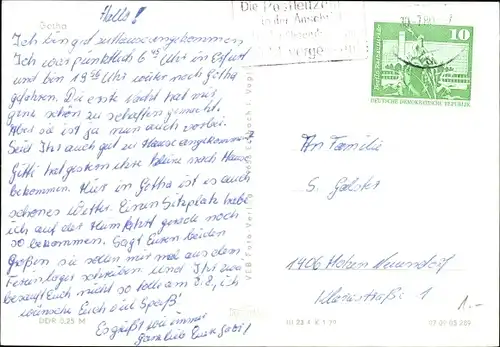 Gotha
Hallo!
Ich bin gut zuHause angekommen
Ich war pünktlich 6 45 Uhr in Erfurt
und bin Uhr weiter nach Gotha
gefahren. Die erste Nacht hat mir
ganz schön zu schaffen gemacht.
Aber sie ist ja nun auch vorbei.
Seid Ihr auch gut zu Hause angekommen?
hat gestern ihre nach Hause
bekommen. Hier in Gotha ist es auch
schönes Wetter. Einen Sitzplatz habe
ich auf der Heimfahrt gerade noch
so bekommen. Sagt Euren beiden
großen sie sollen mir mal aus dem
Ferienlager schreiben und Ihr zwei
besauft Euch nicht so doll am 2.8., ich
wünsche Euch viel Spaß!
Es grüßt wie immer
ganz lieb Eure Gabi!
DDR 0,25 M
VEB Foto-Verl
Die Postleitzahl
in der Anschrift
nicht vergessen
10
DEUTSCHE DEMOKRATISCHE REPUBLIK
An Familie
S.
1906
1
1.-
III 23 4 K 1 79